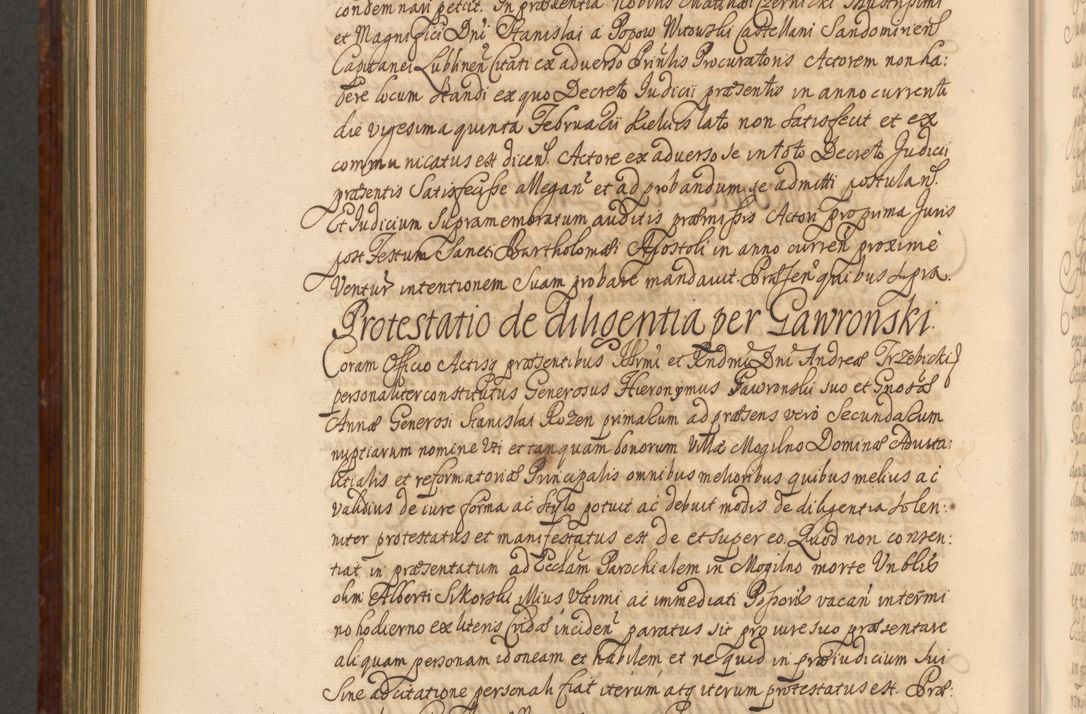 condemnari petiit. In præsentia Nobilis Matthæi Czernicki Illustrissimi
et Magnifici Dni Stanislai a Popow Witowski Castellani Sandominen
Capitanei Lublinen Citati ex adverso Prinlis Procuratoris Actorem non ha:
bere locum standi ex quo Decreto Judicii præsentis in anno currenti
die vigesima quinta Februarii Kielciis lato non satisfecit et ex
communicatus est dicen. Actore ex adverso se in toto Decreto Judicii
præsentis Satisfecisse allegan et ad probandum se admitti postulan.
Et Judicium supramemoratum auditis præmissis Actori pro prima Juris
post Festum Sancti Bartholomæi Apostoli in anno curren proxime
Ventur intentionem suam probare mandavit. Præsen quibus supra.
Protestatio de diligentia per Gawronski.
Coram Officio Actisq præsentibus Illrmi et Rndmi Dni Andreæ Trzebicki
personaliter constitutus Generosus Hieronymus Gawronski suo et Gnosæ
Annæ Generosi Stanislai Rozen primarum ad præsens vero Secundarum
nuptiarum nomine uti et tanquam bonorum Villæ Mogilno Dominæ Advita:
litialis et reformatoriæ Principalis omnibus melioribus quibus melius ac
validius de iure forma ac stylo potuit ac debuit modis de diligentia solen:
niter protestatus et manifestatus est de et super eo. Quod non consen:
tiat in præsentatum ad Ecclam Parochialem in Mogilno morte Vnblis
olim Alberti Sikorski illius Ultimi ac immediati Possoris vacan intermi
no hodierno ex litens Cridæ inciden paratus sit pro iure suo præsentare
aliquam personam idoneam et habilem et ne quid in præiudicium sui
sine ad citatione personali fiat iterum atq iterum protestatus est. Præ: